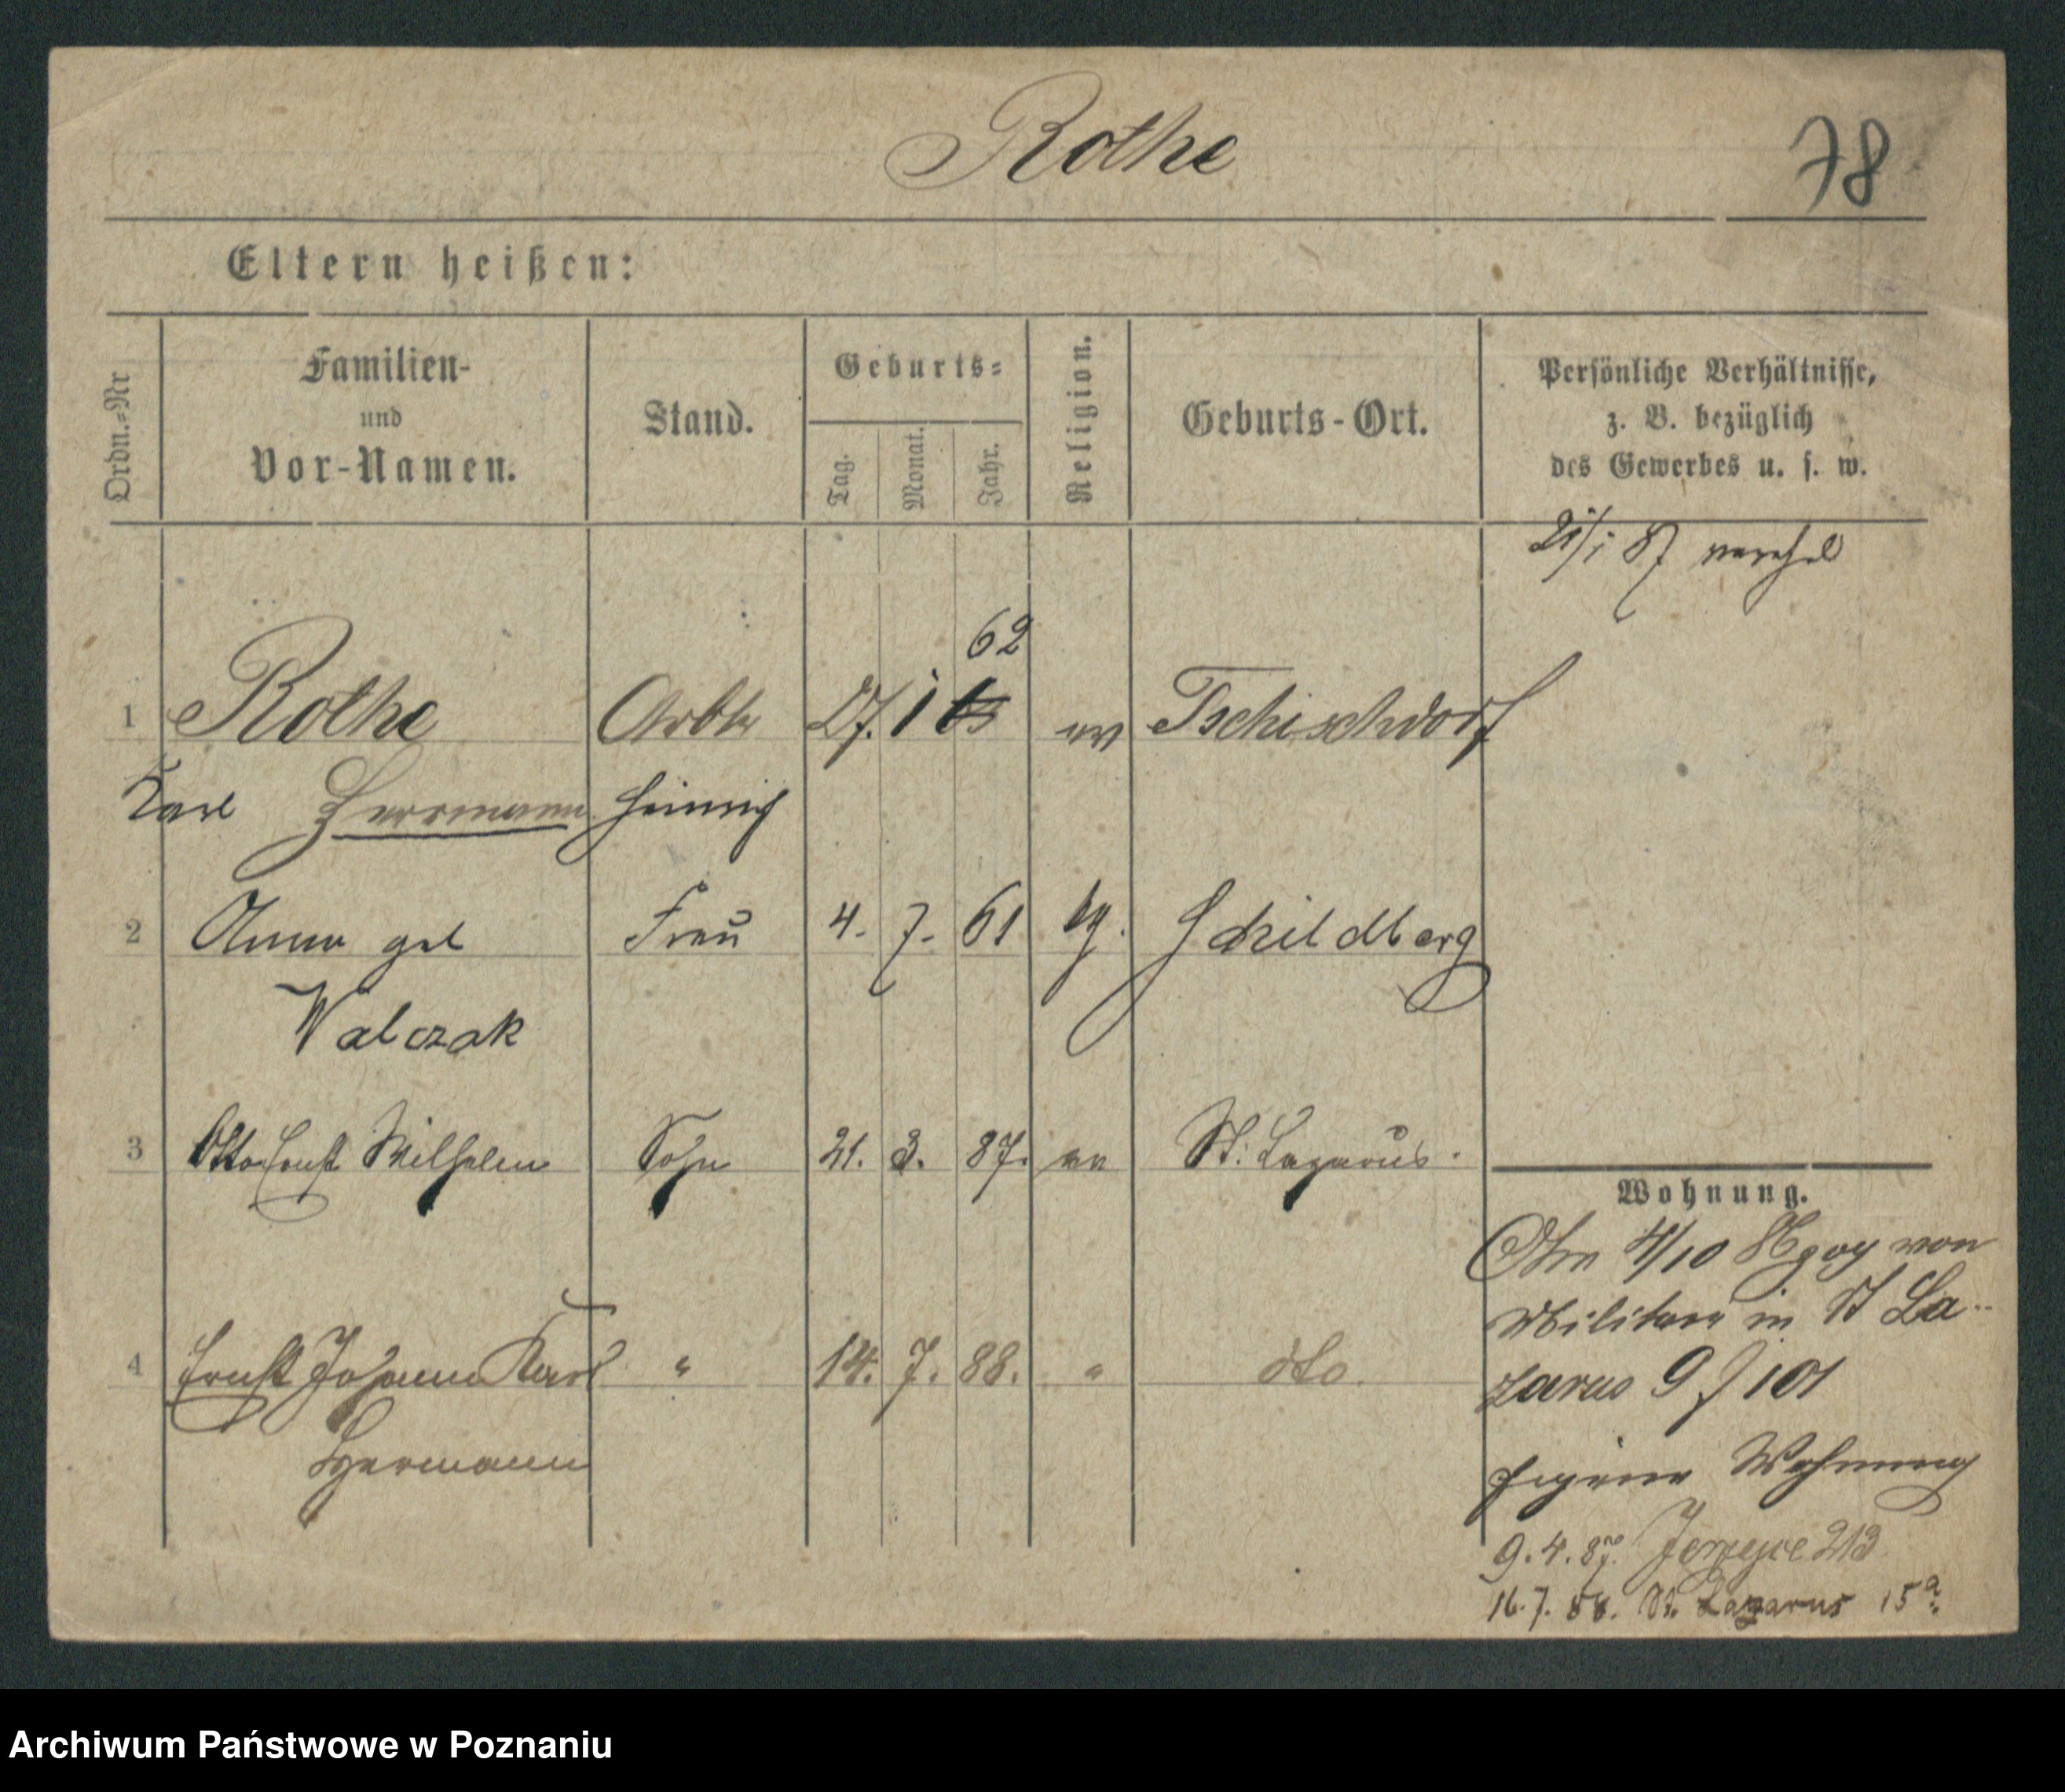 Rothe
78
Eltern heißen:
Ordn.=Nr
Familien-
und
Vor-Namen.
Stand.
Geburts=
Tag.
Monat.
Jahr.
Religion.
Geburts-Ort.
Persönliche Verhältnisse,
z. B. bezüglich
des Gewerbes u. s. w.
21/1 87 verehel
62
1 Rothe Arbtr 27. 1 63 ev Tschischdorf
Karl Herrmann Heinrich
2 Anna geb Frau 4. 7. 61 kg. Schildberg
Walczak
3 Otto Ernst Wilhelm Sohn 21. 3. 87. ev St. Lazarus.
4 Ernst Johann Karl " 14. 7. 88. " dto.
Hermann
Wohnung.
4/10 86 von
Militair in St La-
zarus 9 J 101
Wohnung
9.4.87. Jerzyce 213
16.7.88. St. Lazarus 15a.
Archiwum Państwowe w Poznaniu